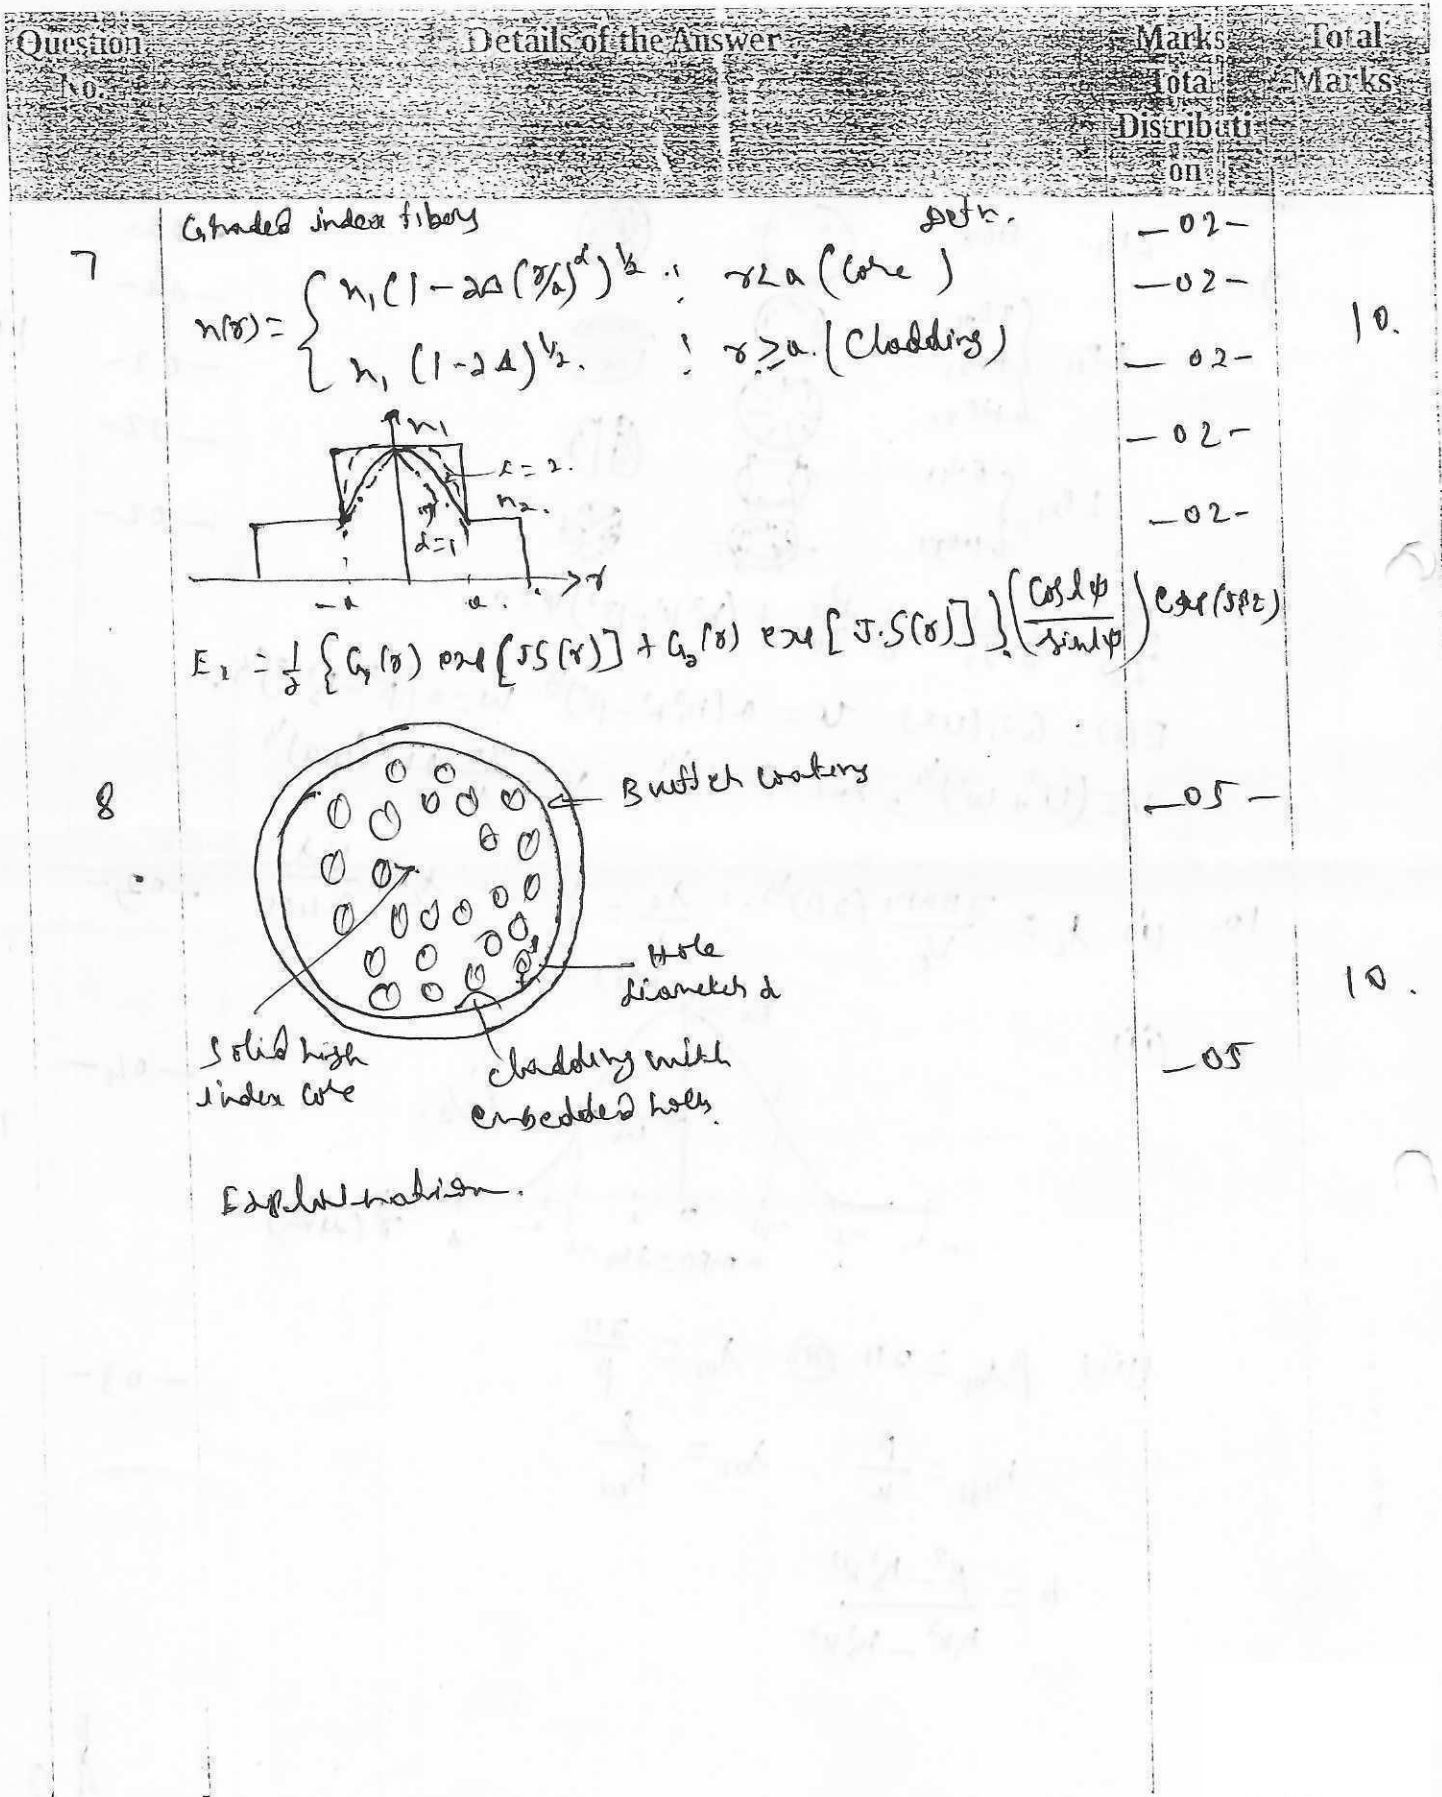 Question No.
Details of the Answer
Marks Total Distribution
Total Marks
7
Graded index fibers
Defn.
n(r) = { n₁(1-2Δ(r/a)^α)^1/2 ; r<a (Core)
n₁ (1-2Δ)^1/2. ; r≥a. (Cladding)
-02-
-02-
-02-
-02-
-02-
10.
n₁
α=2.
n₂.
α=1
-a
a.
r
E₂ = 1/2 { G₁(r) exp[JS(r)] + G₂(r) exp[J.S(r)] } (Coslφ/sinlφ) exp(Jβz)
8
Buffer coating
-05-
Hole
diameter d
10.
Solid high
index core
cladding with
embedded holes.
-05
Explaination.